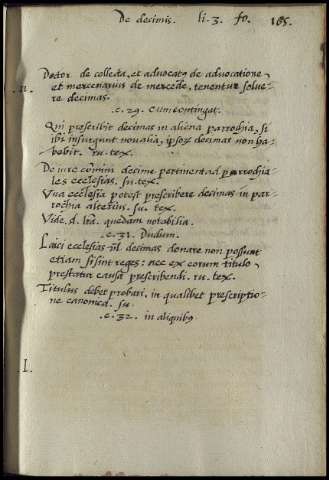 De decimis. li. 3. fo. 165.
Doctor de collecta, et advocatꝰ de advocatione
.11. et mercenarius de mercede, tenentur solve-
re decimas.
.c. 29. Cum contingat.
Qui proscribit decimas in aliena parrochia, si
ibi insurgunt novalia, ipsoꝝ decimas non ha-
bebit. ru. tex.
De iure com̄uni decime pertinent ad parrochia
les ecclesias. su. tex.
Una ecclesia potest prescribere decimas in par-
rochia alterius. su. tex.
Vide. d. quedam notabilia.
.c. 31. Dudum.
Laici ecclesias ul̄ decimas donare non possunt
etiam si sint reges: nec ex eorum titulo
prestatur causa prescribendi. ru. tex.
Titulus debet probari, in qualibet prescriptio-
ne canonica. su.
.c. 32. in aliquibꝰ
.I.